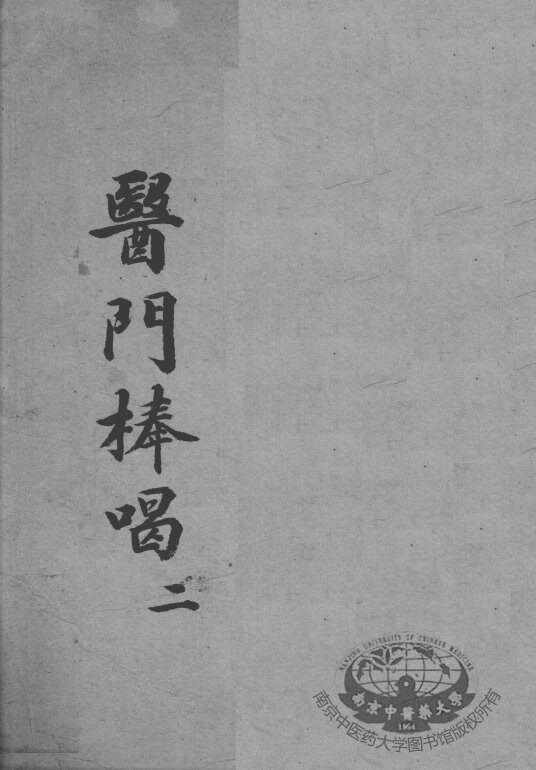 醫門棒喝二
NANJING UNIVERSITY OF CHINESE MEDICINE
南京中醫藥大學
1954
南京中医药大学图书馆版权所有